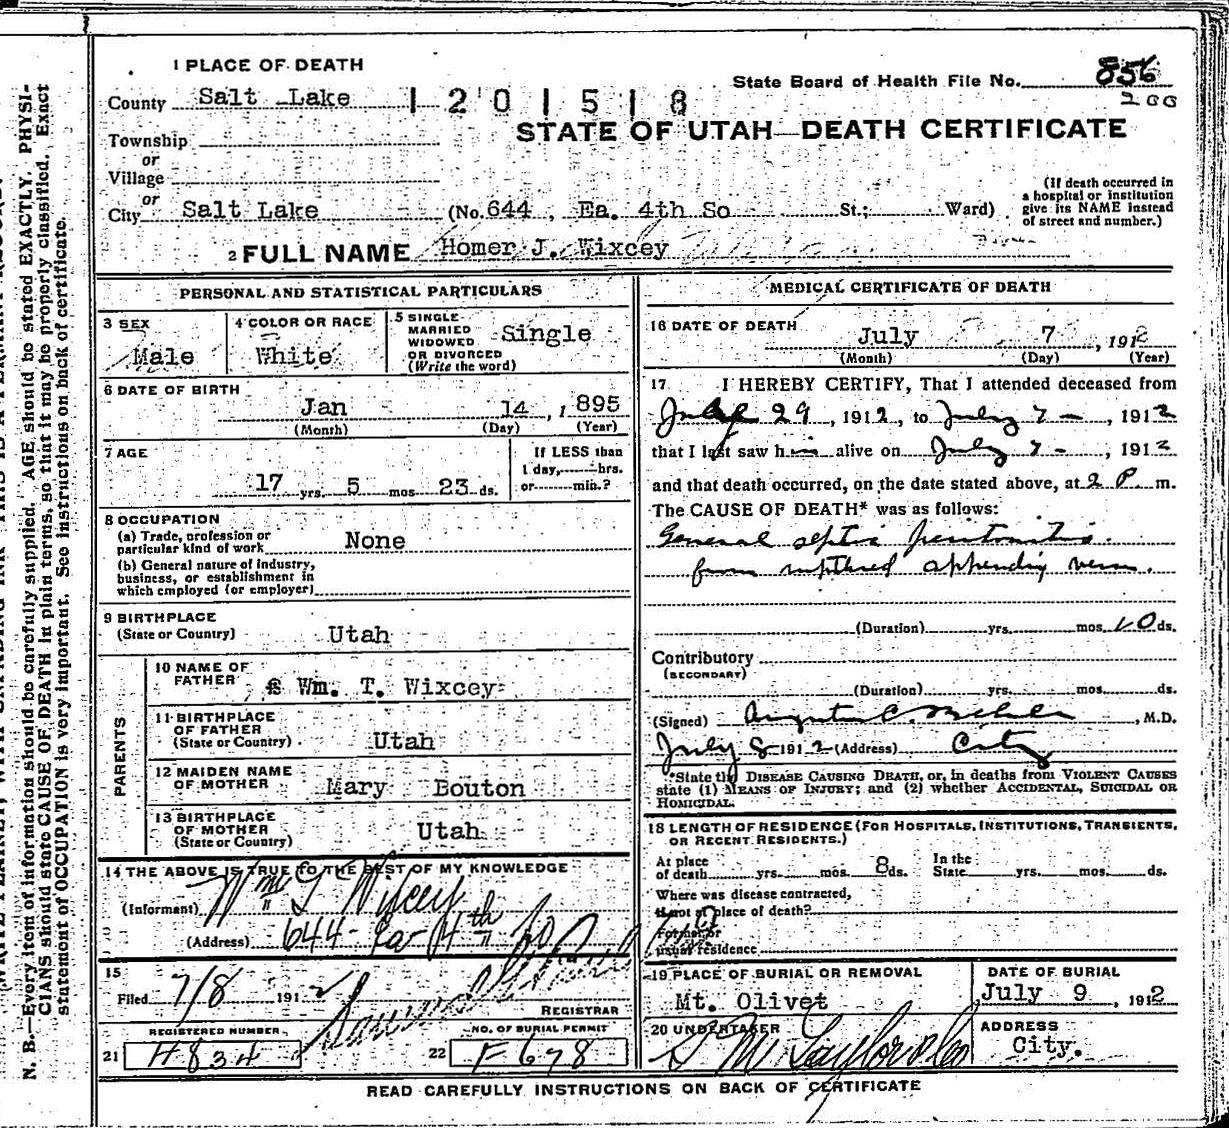 1 PLACE OF DEATH
State Board of Health File No. 856
200
County Salt Lake
1201518
STATE OF UTAH—DEATH CERTIFICATE
Township
or
Village
or
City Salt Lake (No. 644, Ea. 4th So St.; Ward)
(If death occurred in
a hospital or institution
give its NAME instead
of street and number.)
2 FULL NAME Homer J. Wixcey
PERSONAL AND STATISTICAL PARTICULARS
3 SEX
Male
4 COLOR OR RACE
White
5 SINGLE
MARRIED
WIDOWED
OR DIVORCED
(Write the word)
Single
6 DATE OF BIRTH
Jan 14, 1895
(Month) (Day) (Year)
7 AGE
17 yrs. 5 mos. 23 ds.
If LESS than
1 day, hrs.
or min.?
8 OCCUPATION
(a) Trade, profession or
particular kind of work None
(b) General nature of industry,
business, or establishment in
which employed (or employer)
9 BIRTHPLACE
(State or Country) Utah
PARENTS
10 NAME OF
FATHER Wm. T. Wixcey
11 BIRTHPLACE
OF FATHER
(State or Country) Utah
12 MAIDEN NAME
OF MOTHER Mary Bouton
13 BIRTHPLACE
OF MOTHER
(State or Country) Utah
14 THE ABOVE IS TRUE TO THE BEST OF MY KNOWLEDGE
(Informant) Wm T Wixcey
(Address) 644 Ea 4th So
15
Filed 7/8 1912
REGISTRAR
REGISTERED NUMBER
21 H834
NO. OF BURIAL PERMIT
22 F678
MEDICAL CERTIFICATE OF DEATH
16 DATE OF DEATH
July 7, 1912
(Month) (Day) (Year)
17 I HEREBY CERTIFY, That I attended deceased from
29, 1912, to July 7 —, 1912
that I last saw him alive on July 7 —, 1912
and that death occurred, on the date stated above, at 2 P. m.
The CAUSE OF DEATH* was as follows:
General septic peritonitis.
from ruptured appendix
(Duration) yrs. mos. 10 ds.
Contributory
(SECONDARY)
(Duration) yrs. mos. ds.
(Signed) M.D.
July 8 1912 (Address) City
*State the DISEASE CAUSING DEATH, or, in deaths from VIOLENT CAUSES
state (1) MEANS OF INJURY; and (2) whether ACCIDENTAL, SUICIDAL OR
HOMICIDAL.
18 LENGTH OF RESIDENCE (FOR HOSPITALS, INSTITUTIONS, TRANSIENTS,
OR RECENT RESIDENTS.)
At place
of death yrs. mos. 8 ds. In the
State yrs. mos. ds.
Where was disease contracted,
if not at place of death?
Former or
usual residence
19 PLACE OF BURIAL OR REMOVAL
Mt. Olivet
DATE OF BURIAL
July 9, 1912
20 UNDERTAKER
S M Taylor & Co
ADDRESS
City.
READ CAREFULLY INSTRUCTIONS ON BACK OF CERTIFICATE
N. B.—Every item of information should be carefully supplied. AGE should be stated EXACTLY. PHYSI-
CIANS should state CAUSE OF DEATH in plain terms, so that it may be properly classified. Exact
statement of OCCUPATION is very important. See instructions on back of certificate.